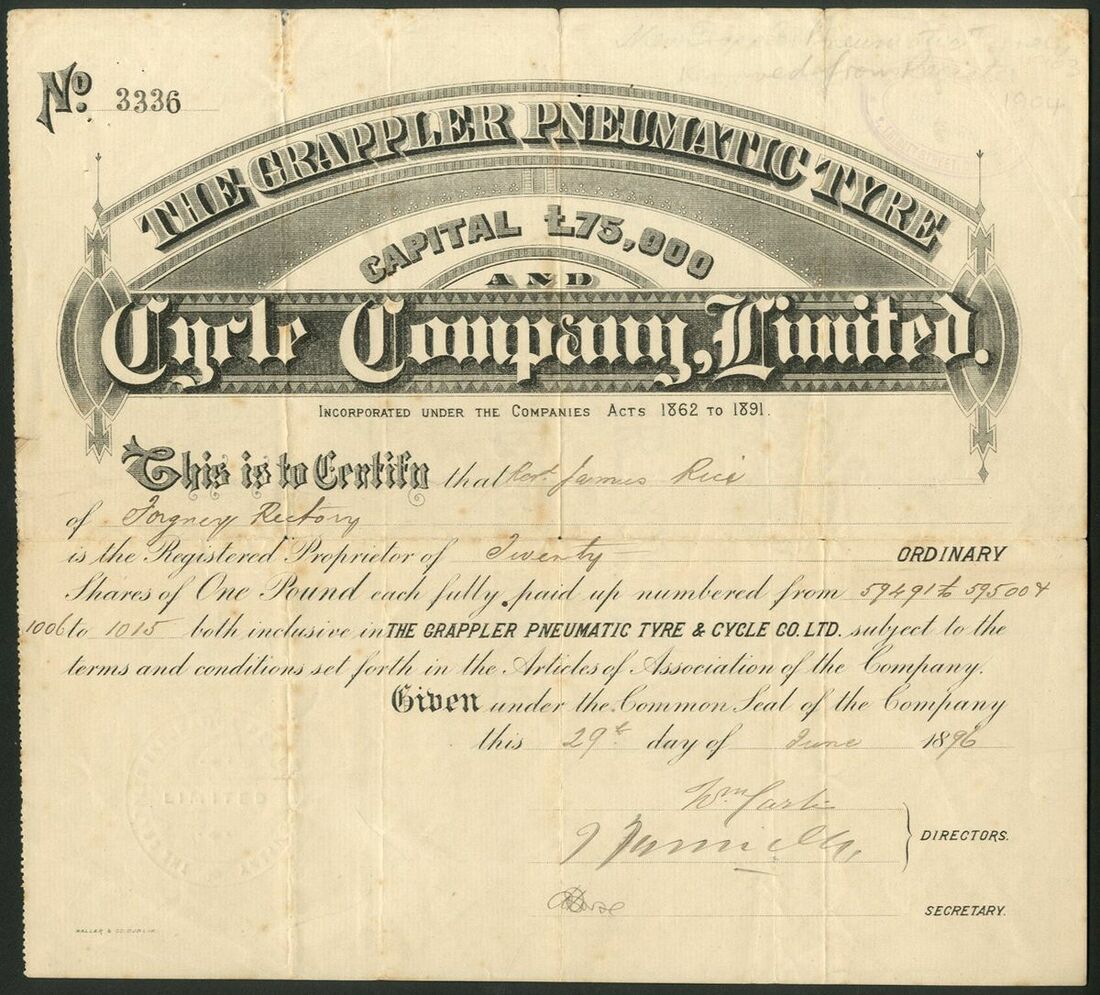 No. 3336
THE GRAPPLER PNEUMATIC TYRE
CAPITAL £75,000
AND
Cycle Company, Limited.
INCORPORATED UNDER THE COMPANIES ACTS 1862 TO 1891.
This is to Certify that Revd. James Rice
of Forgney Rectory
is the Registered Proprietor of Twenty ORDINARY
Shares of One Pound each fully paid up numbered from 59491 to 59500 &
1006 to 1015 both inclusive in THE GRAPPLER PNEUMATIC TYRE & CYCLE CO. LTD. subject to the
terms and conditions set forth in the Articles of Association of the Company.
Given under the Common Seal of the Company
this 29th day of June 1896
Wm
DIRECTORS.
SECRETARY.
LIMITED
WALLER & CO. DUBLIN
1904